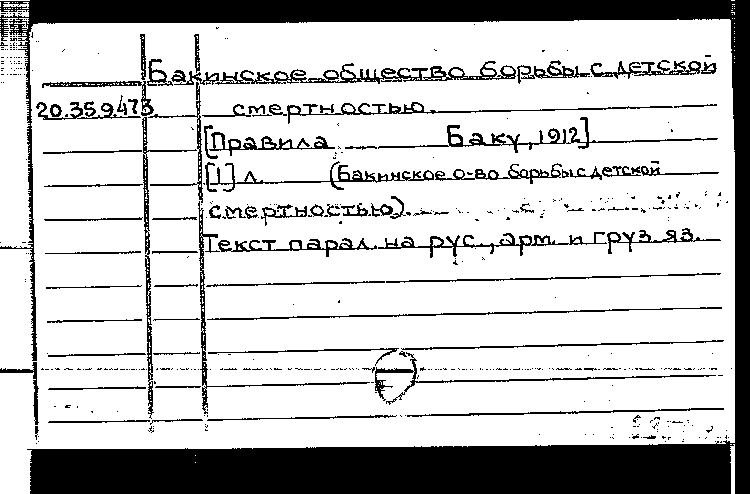 Бакинское общество борьбы с детской
20.359.473. смертностью.
[Правила Баку, 1912].
[1] л. (Бакинское о-во борьбы с детской
смертностью).
Текст парал. на рус., арм. и груз. яз.